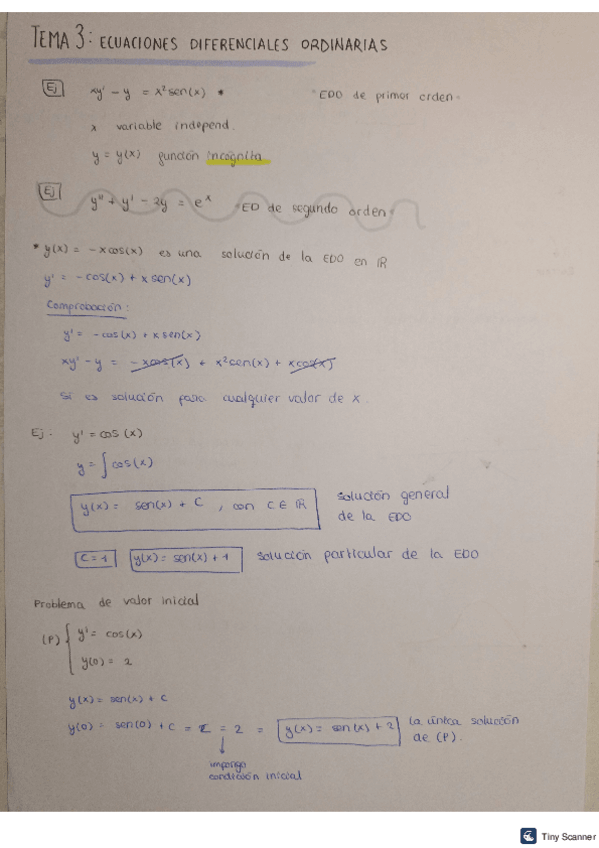 TEMA 3: ECUACIONES DIFERENCIALES ORDINARIAS
Ej xy' - y = x² sen(x) * "EDO de primer orden"
x variable independ.
y = y(x) función incógnita
Ej y'' + y' - 3y = eˣ "ED de segundo orden"
* y(x) = -x cos(x) es una solución de la EDO en ℝ
y' = -cos(x) + x sen(x)
Comprobación:
y' = -cos(x) + x sen(x)
xy' - y = -x cos(x) + x² sen(x) + x cos(x)
Sí es solución para cualquier valor de x.
Ej. y' = cos(x)
y = ∫ cos(x)
y(x) = sen(x) + C, con C ∈ ℝ solución general
de la EDO
C = 1 y(x) = sen(x) + 1 solución particular de la EDO
Problema de valor inicial
(P) { y' = cos(x)
y(0) = 2
y(x) = sen(x) + C
y(0) = sen(0) + C = C = 2 = y(x) = sen(x) + 2 la única solución
de (P).
↓
impongo
condición inicial
Tiny Scanner